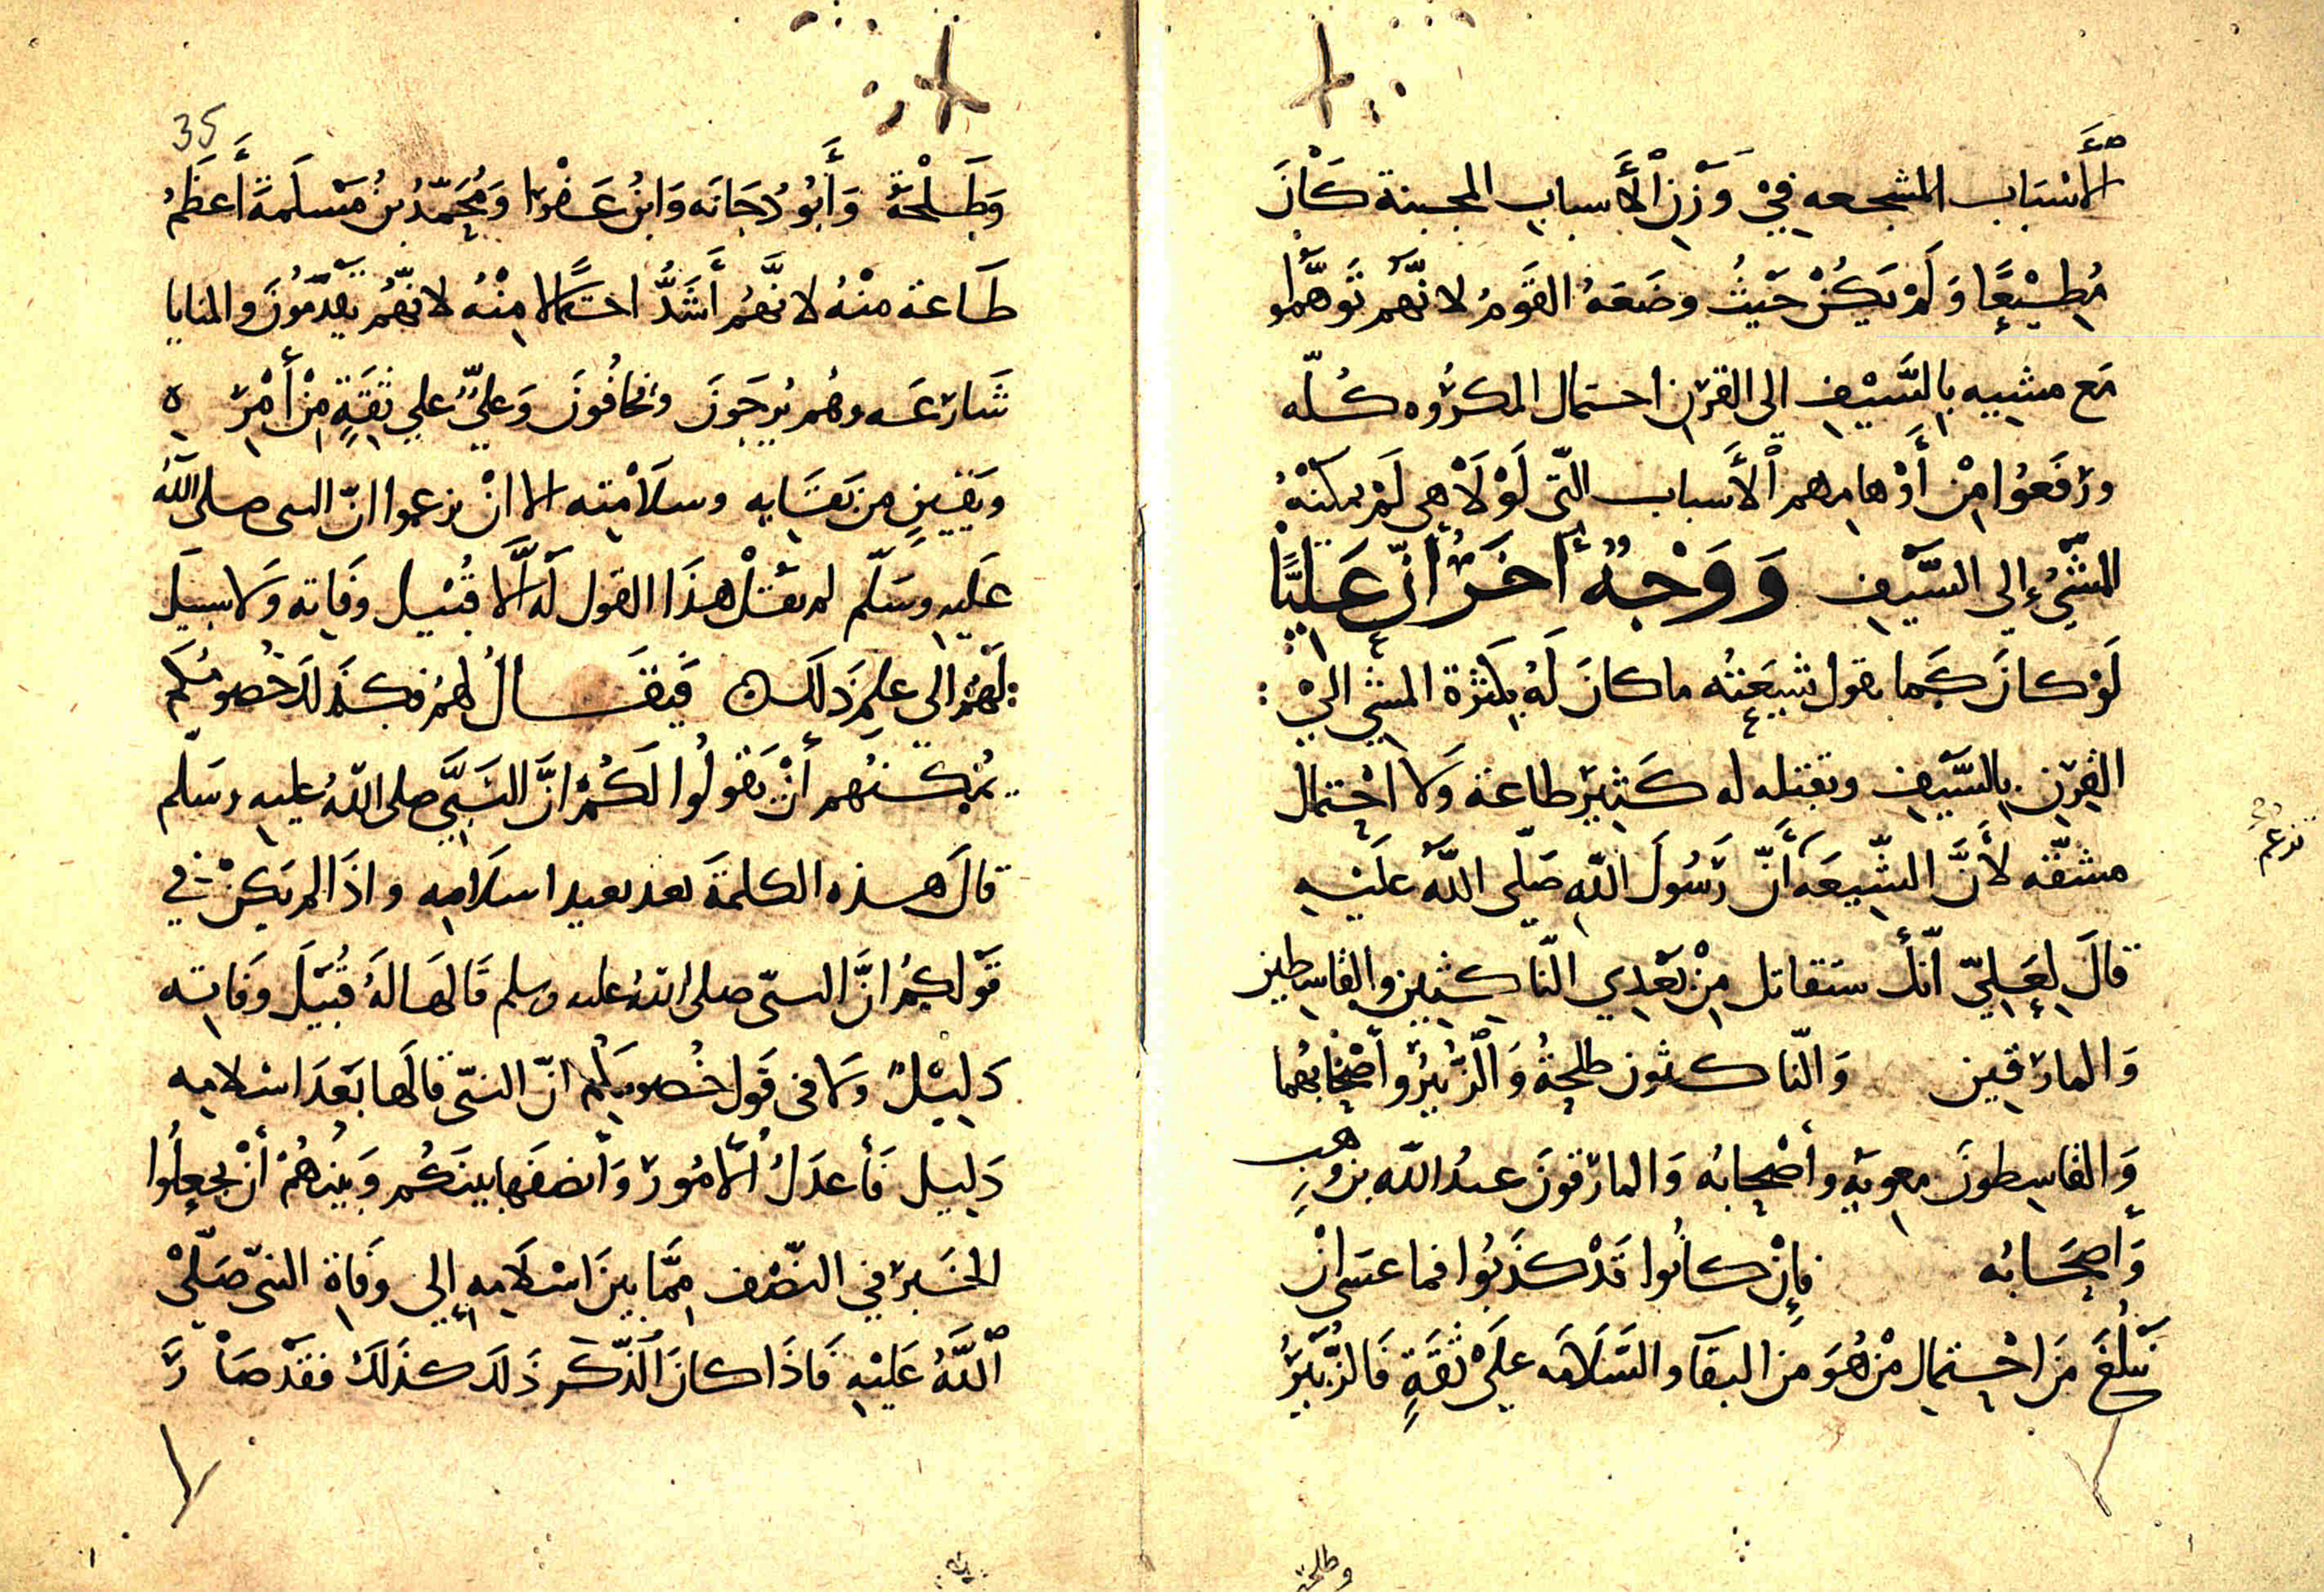 الأَسْبَاب المشجعه فِيْ وَزْنِ الْأَسباب المجبنة كَانَ
مُطِيْعًا وَلَمْ يَكُنْ حَيْثُ وضَعَهُ القَوْمُ لانَّهُمْ تَوَهَّمُوا
مَع مشيه بِالسَّيْفِ الى القرْنِ احتمال المكرُوه كُلّه
ورَفَعُوا مِنْ أَوْهامِهم الْأَسباب التّي لَوْلَا هي لَمْ يمكنْهُ
المَشْيُ إِلى السَّيفِ وَوَجْهٌ أخَرُ انّ عَلِيًّا
لَوْ كانَ كَما يقول شيعَتُه ما كانَ لَهُ بِكثْرة المشيِ الىَ
القِرْنِ بِالسَّيفِ وبقتله له كَثِيْر طاعة وَلا احْتِمال
مشقّه لأَنَّ الشّيعَه أَنَّ رَسُولَ اللّهِ صَلّى اللّهُ عَلَيْهِ
تزعم
قالَ لِعَلِيّ انّك ستقاتل مِنْ بَعْدِي النّاكِثِين والقاسِطِين
وَالمارقِين وَالنّاكثون طلحةُ وَالزُّبَيْرُ وأَصْحَابُهما
وَالقاسِطونَ معوية وأَصْحابُه وَالمارقونَ عبدُ اللّه بن وهب
وَأَصْحَابُه فَإِنْ كانُوا قَدْ كَذَبُوا فما عسَى انْ
نَبْلُغَ مَن احْتِمالِ مَنْ هُوَ مَن البقآ والسَّلَامَه عَلَىْ ثقَةٍ فَالزُّبَيْرُ
وطلحة
35
وَطَلْحَةُ وَأَبُو دُجَانَه وَابْنُ عَفْرَا وَمُحَمّدُ بْنُ مَسْلَمَةَ أَعظَمُ
طَاعة منْهُ لانَّهُم أَشَدُّ احتمالًا مِنْهُ لانَّهُمْ يقْدَمُونَ والمنايا
شَارعَه وهُم يُرجَونَ ويخافُونَ وَعليٌّ علي ثِقَةٍ مِنْ أَمْرِه
ويَقينٍ من بَقَايِه وسلَامَتِه الا انْ يزعموا انّ النبى صلى اللّهُ
عَلَيهِ وسَلّم لم يقُلْ هذَا القول لَهُ الَّا قُبَيْل وفَاتِه وَلا سبيلَ
لَهُمْ الي علم ذَلكَ فَيقَالُ لهُم فكذَلكَ خُصُومُكُم
يُمْكنهُم أَنْ يَقولُوا لَكُمْ انَّ النَّبِيَّ صلى اللّهُ عليه وسَلّم
قالَ هذه الكلمةَ بعد بعيد اسلَامِه واذَا لم يَكنْ في
قَوْلِكُم انَّ النبىّ صلى اللّهُ عليه وسلم قَالهَا لَهُ قُبَيْلَ وَفَاتِه
دَلِيْلٌ وَلا فى قَول خُصُومِكُم انّ النبىّ قالَها بَعْدَ اسْلامِه
دَلِيل فَأعدَلُ الأُمُورِ وَأَنصَفها بينَكُم وَبينهُمْ أَنْ يجعلُوا
الخَبر فِي النّصْف مِمَّا بينَ اسْلَامِه إِلى وفَاةِ النبىّ صَلّىْ
اللّهُ عَلَيْهِ فَاذَا كانَ الذّكْر ذَلكَ كذَلكَ فقَدْ صَارَ